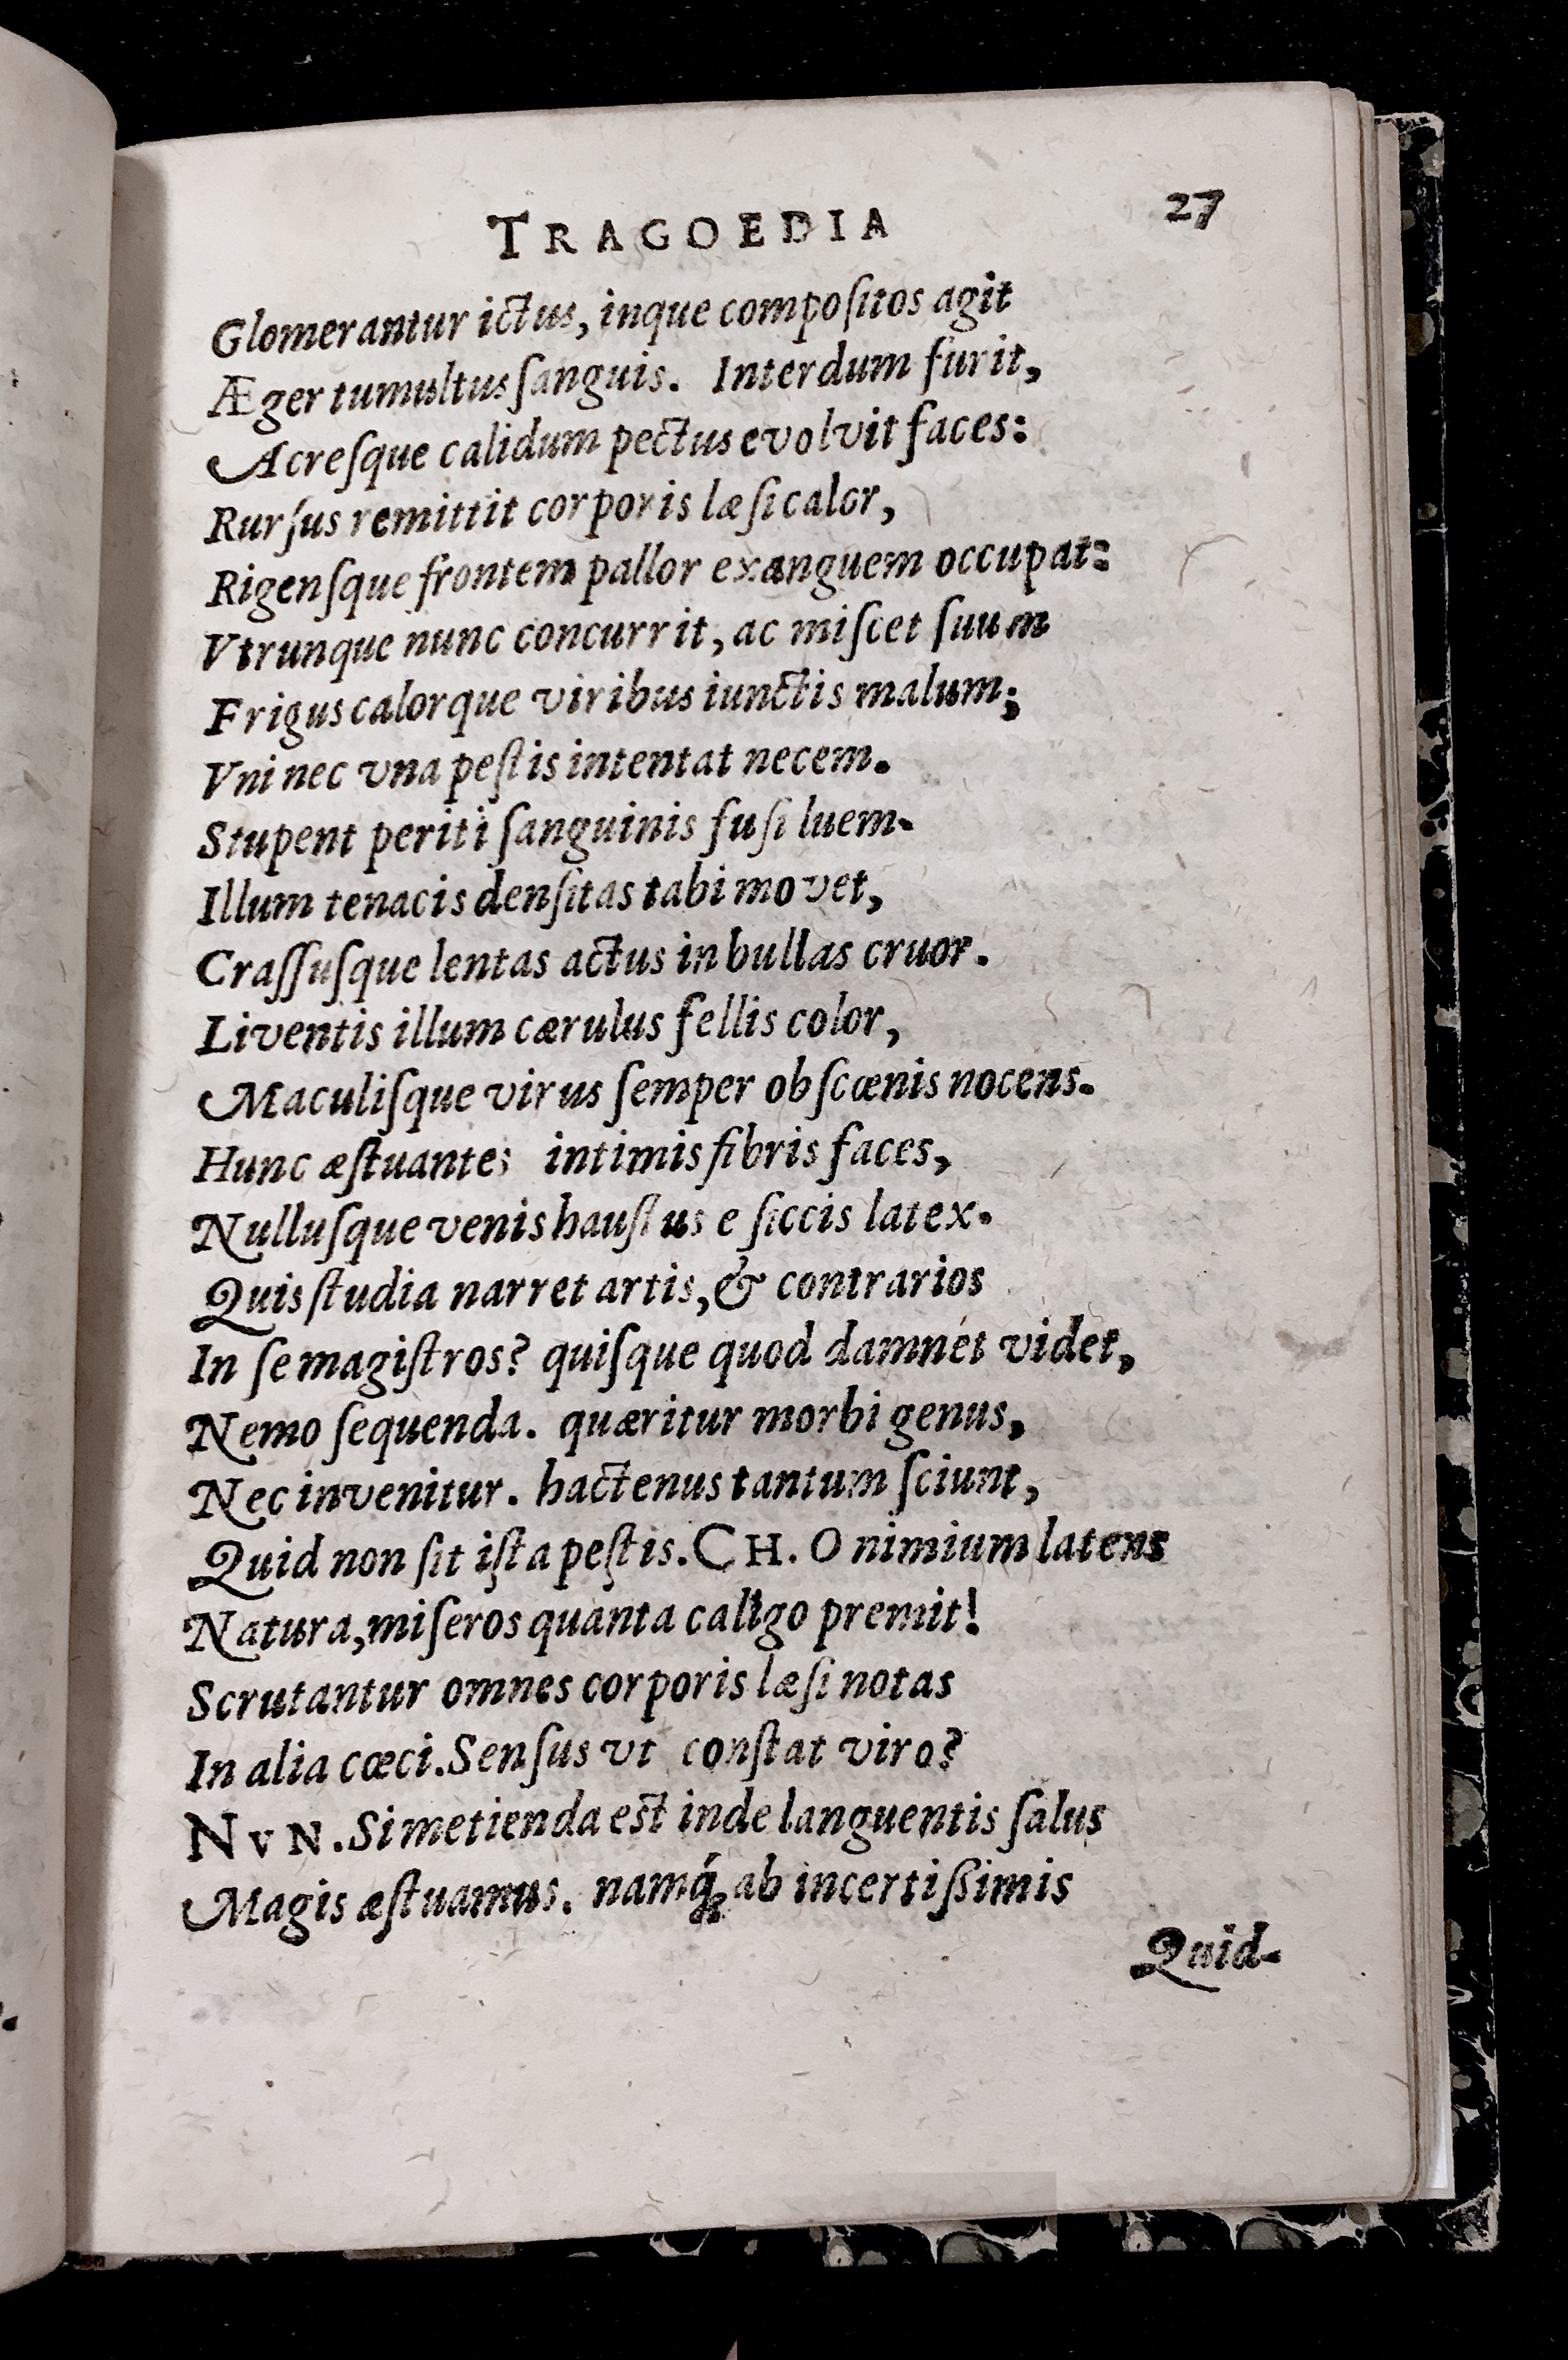 TRAGOEDIA 27
Glomerantur ictus, inque compoſitos agit
Æger tumultus ſanguis. Interdum furit,
Acreſque calidum pectus evolvit faces:
Rurſus remittit corporis læſi calor,
Rigenſque frontem pallor exanguem occupat:
Vtrunque nunc concurrit, ac miſcet ſuum
Frigus calorque viribus iunctis malum;
Vni nec vna peſtis intentat necem.
Stupent periti ſanguinis fuſi luem.
Illum tenacis denſitas tabi movet,
Craſſuſque lentas actus in bullas cruor.
Liventis illum cærulus fellis color,
Maculiſque virus ſemper obſcœnis nocens.
Hunc æſtuantes intimis fibris faces,
Nulluſque venis hauſtus e ſiccis latex.
Quis ſtudia narret artis, & contrarios
In ſe magiſtros? quiſque quod damnet videt,
Nemo ſequenda. quæritur morbi genus,
Nec invenitur. hactenus tantum ſciunt,
Quid non ſit iſta peſtis. CH. O nimium latens
Natura, miſeros quanta caligo premit!
Scrutantur omnes corporis læſi notas
In alia cœci. Senſus vt conſtat viro?
NVN. Si metienda eſt inde languentis ſalus
Magis æſtuamus. namq́; ab incertiſſimis
Quid-